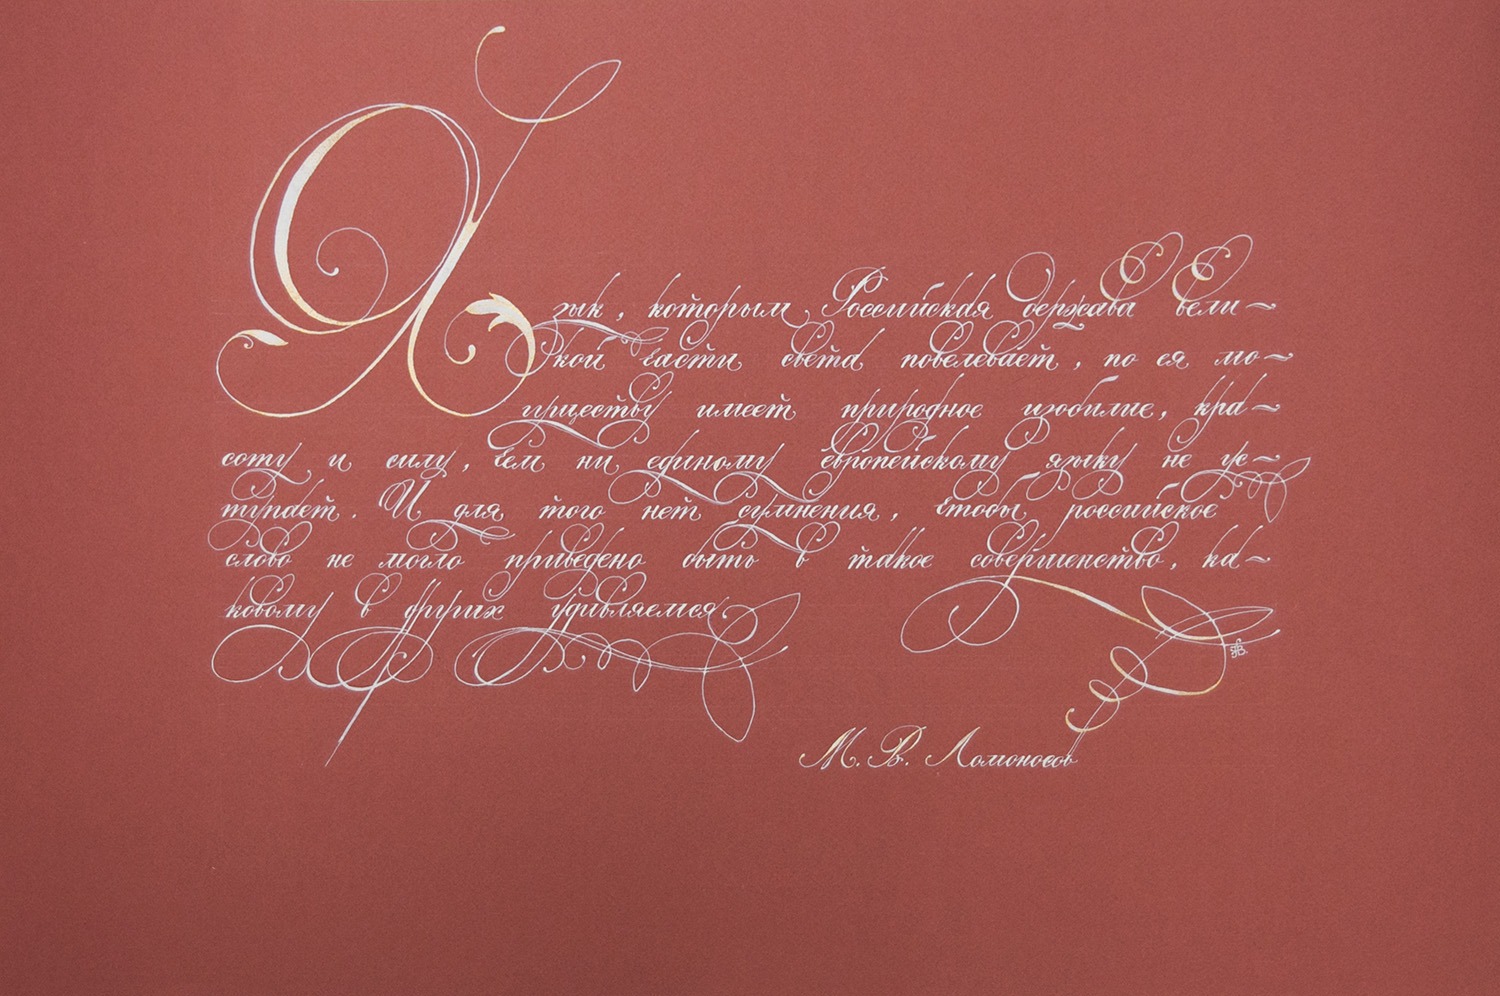 Язык, которым Российская держава вели~
кой части света повелевает, по ея мо~
гуществу имеет природное изобилие, кра~
соту и силу, чем ни единому европейскому языку не ус~
тупает. И для того нет сумнения, чтобы российское
слово не могло приведено быть в такое совершенство, ка~
ковому в других удивляемся
М. В. Ломоносов